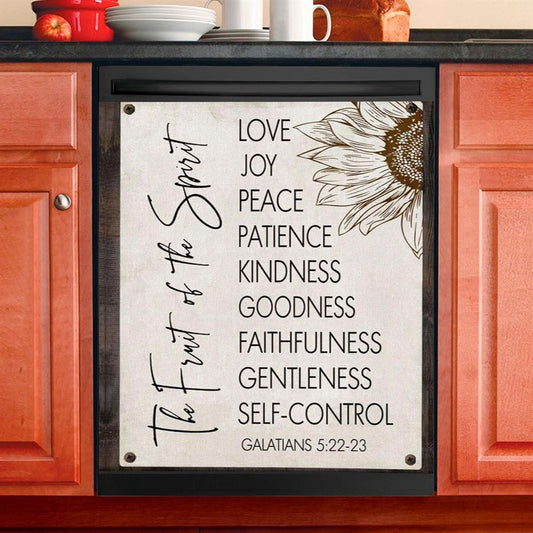 The Fruit of the Spirit
LOVE
JOY
PEACE
PATIENCE
KINDNESS
GOODNESS
FAITHFULNESS
GENTLENESS
SELF-CONTROL
GALATIANS 5:22-23